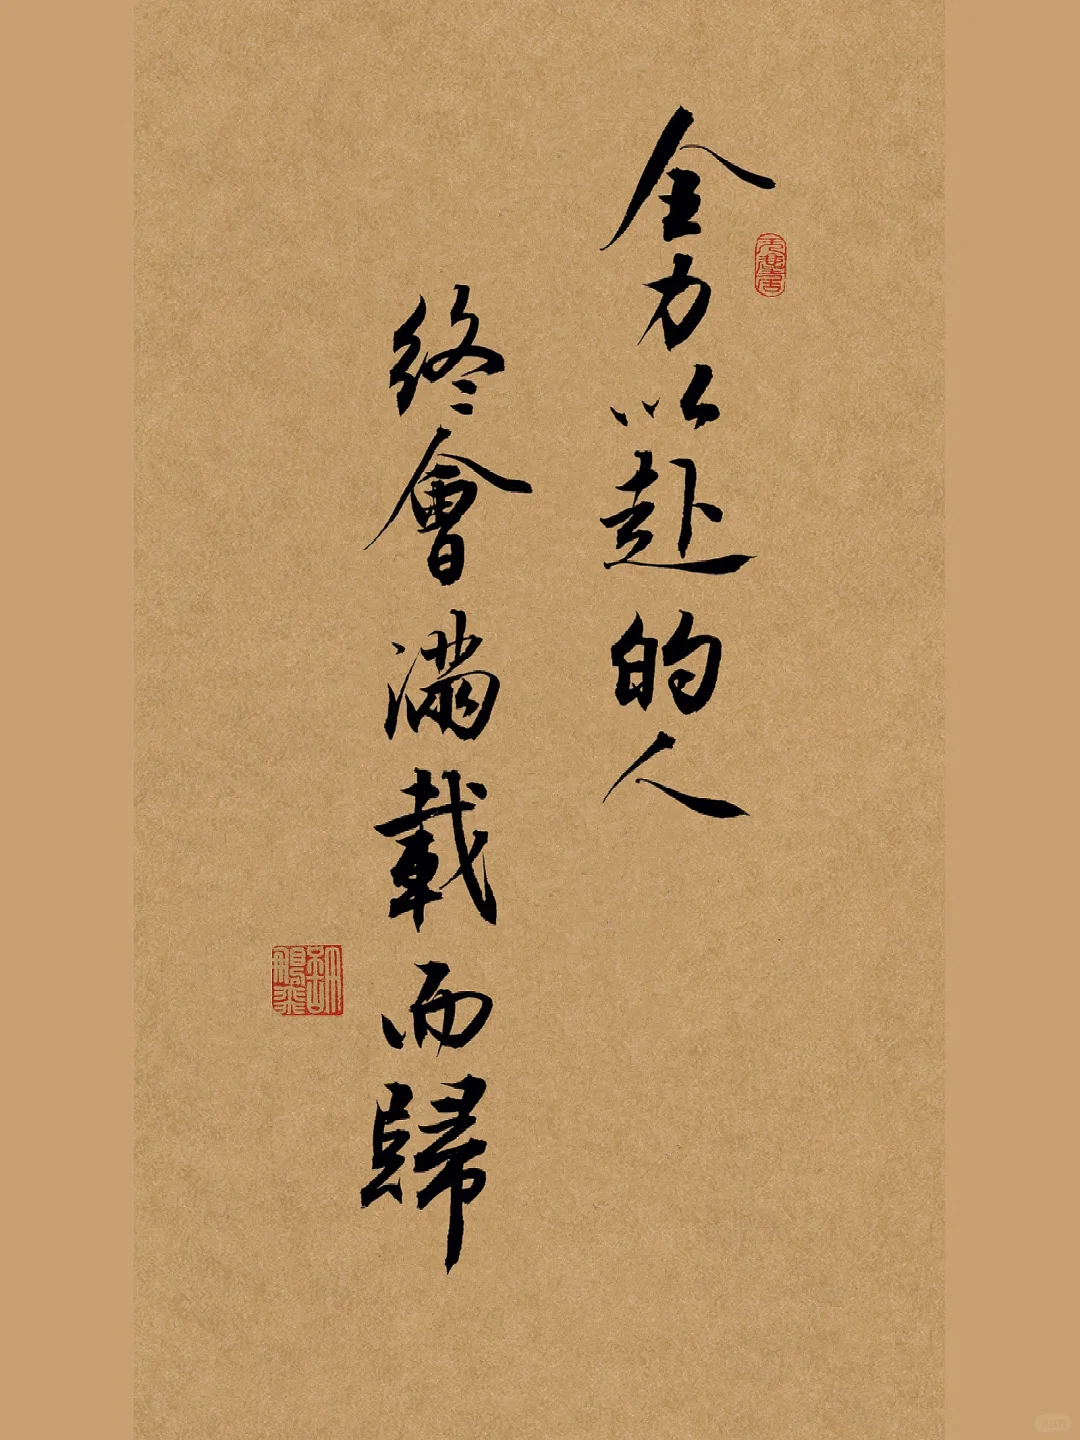 全力以赴的人
終會滿載而歸